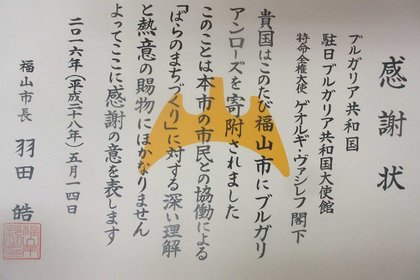 感謝状
ブルガリア共和国
駐日ブルガリア共和国大使館
特命全権大使 ゲオルギ・ヴァシレフ 閣下
貴国はこのたび福山市にブルガリ
アンローズを寄附されました
このことは本市の市民との協働による
「ばらのまちづくり」に対する深い理解
と熱意の賜物にほかなりません
よってここに感謝の意を表します
二〇一六年(平成二十八年)五月一四日
福山市長 羽田 皓